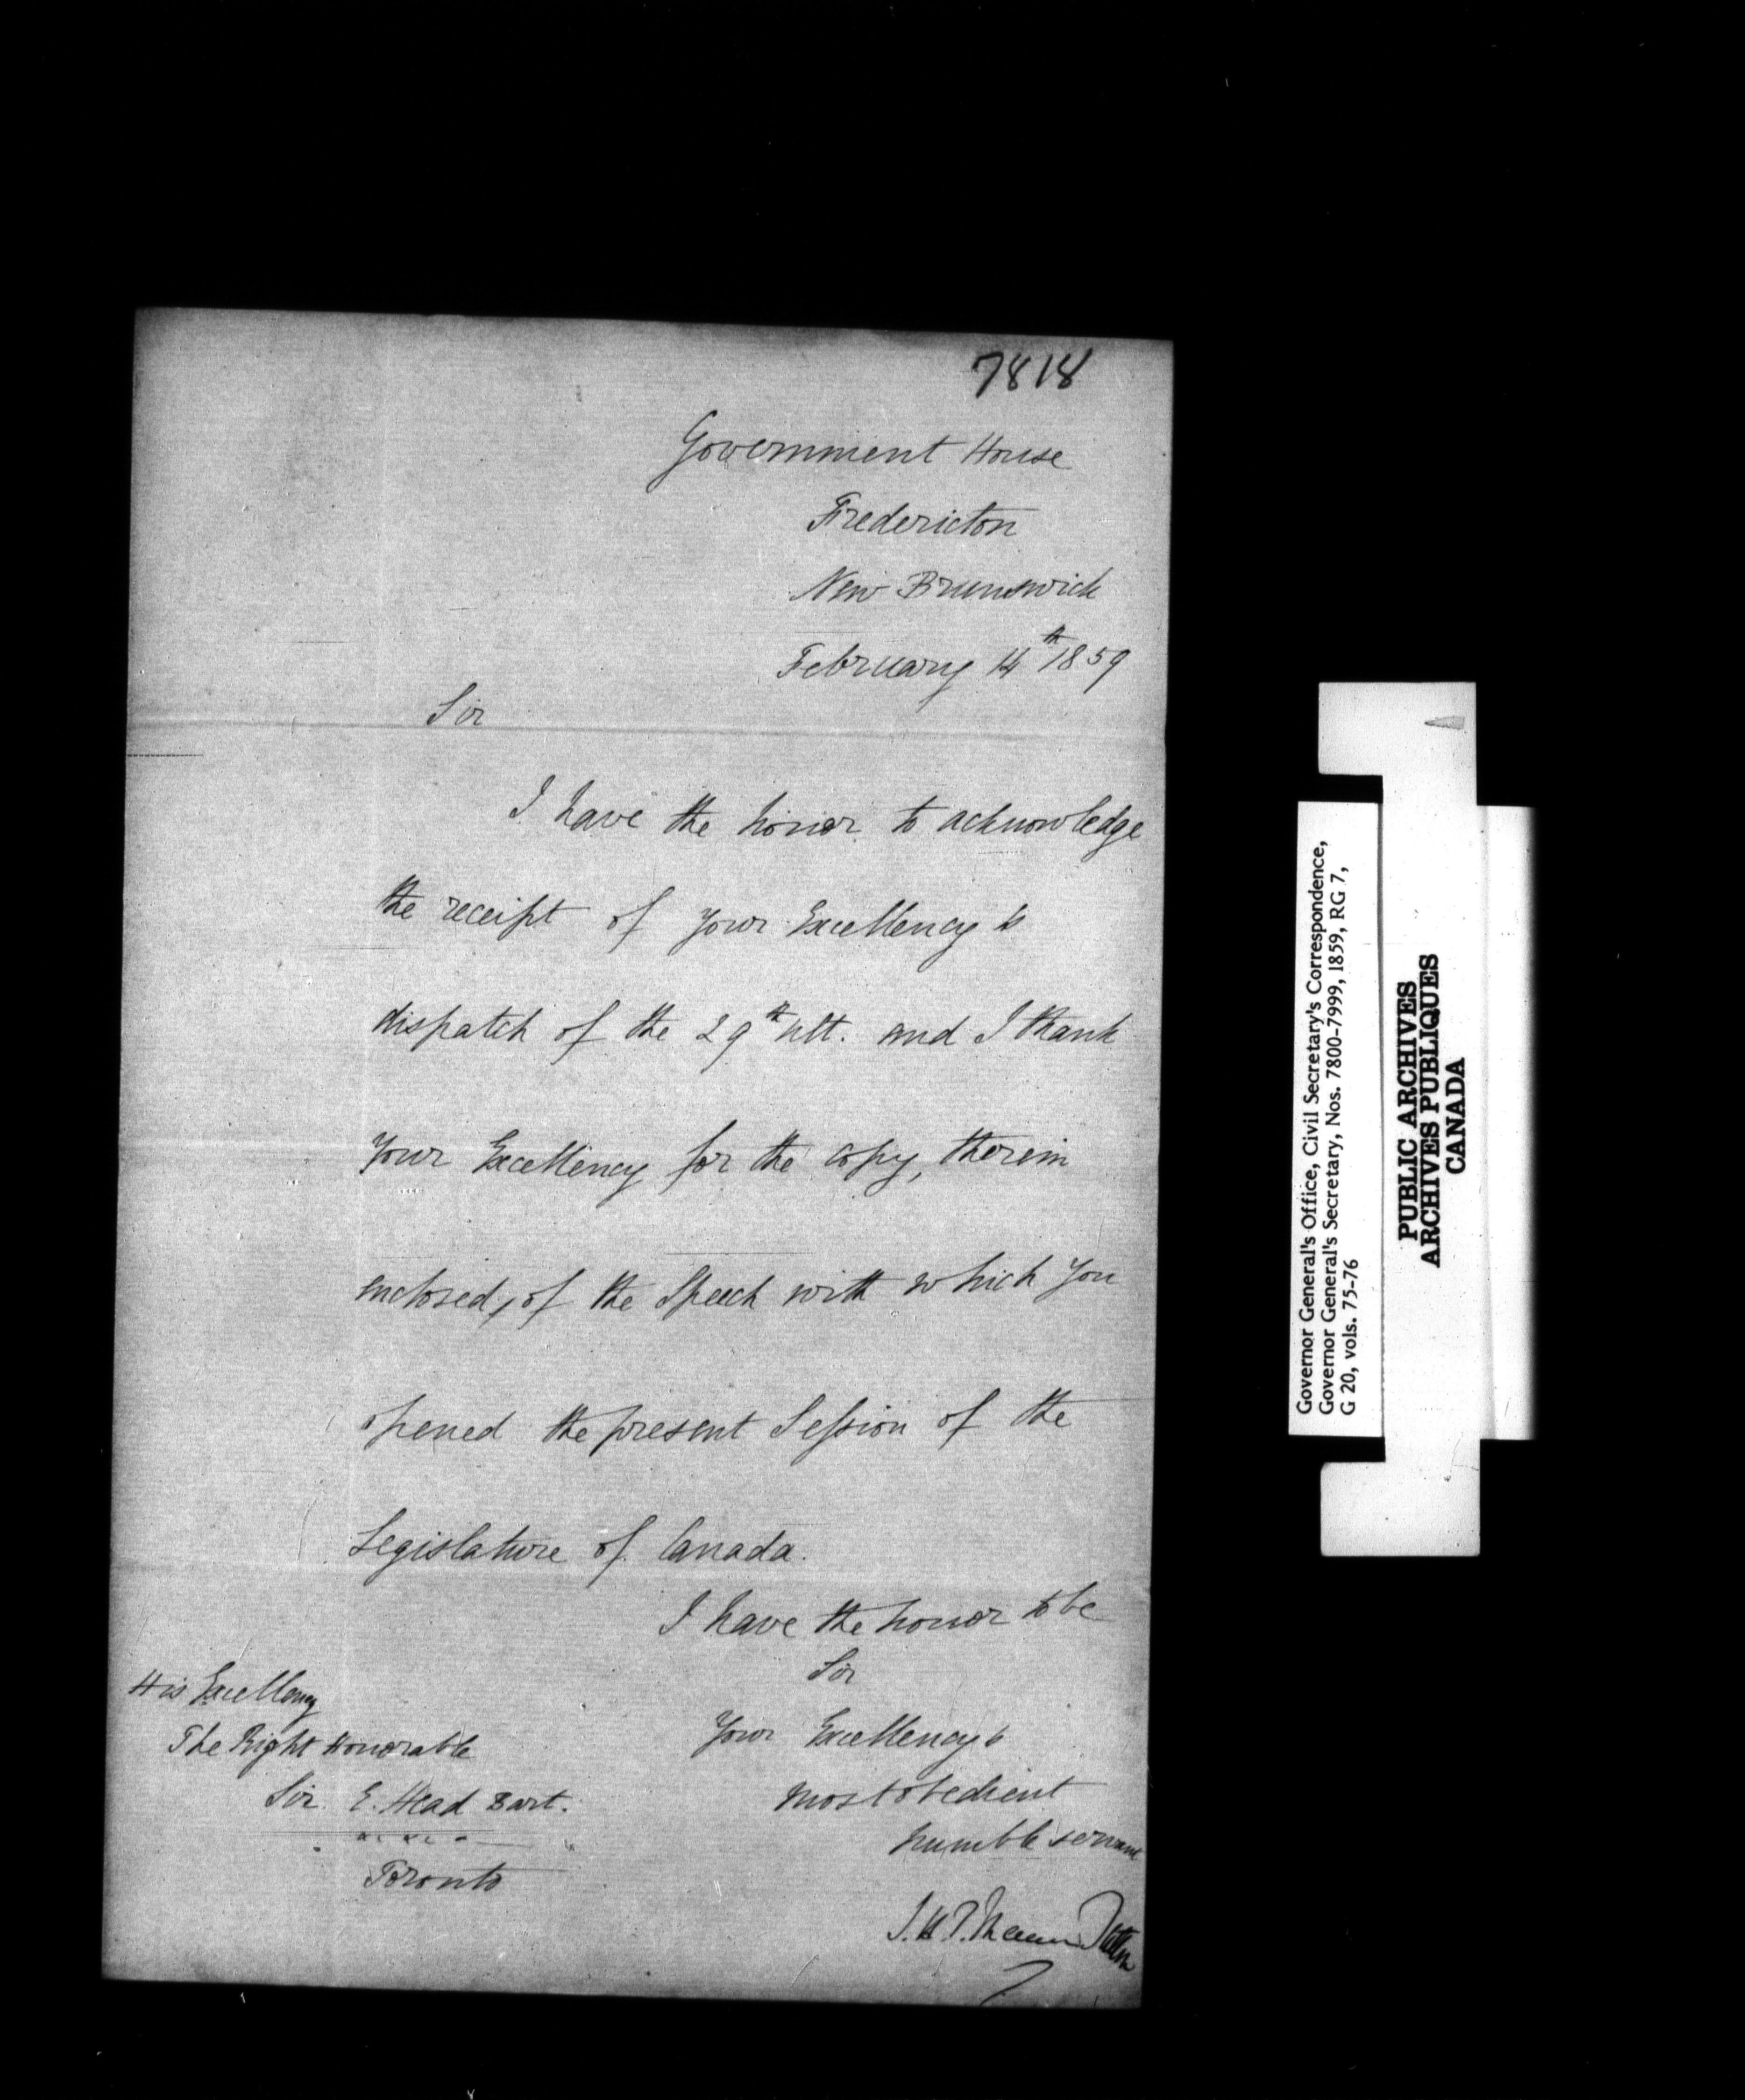 7818
Government House
Fredericton
New Brunswick
February 14th 1859
Sir
I have the honor to acknowledge
the receipt of your Excellency's
dispatch of the 29th ult. and I thank
Your Excellency for the copy, therein
enclosed, of the Speech with which You
opened the present Session of the
Legislature of Canada.
I have the honor to be
Sir
Your Excellency's
most obedient
humble servant
J. H. T. Manners Sutton
His Excellency
The Right Honorable
Sir E. Head Bart.
Toronto
Governor General's Office, Civil Secretary's Correspondence,
Governor General's Secretary, Nos. 7800-7999, 1859, RG 7,
G 20, vols. 75-76
PUBLIC ARCHIVES
ARCHIVES PUBLIQUES
CANADA